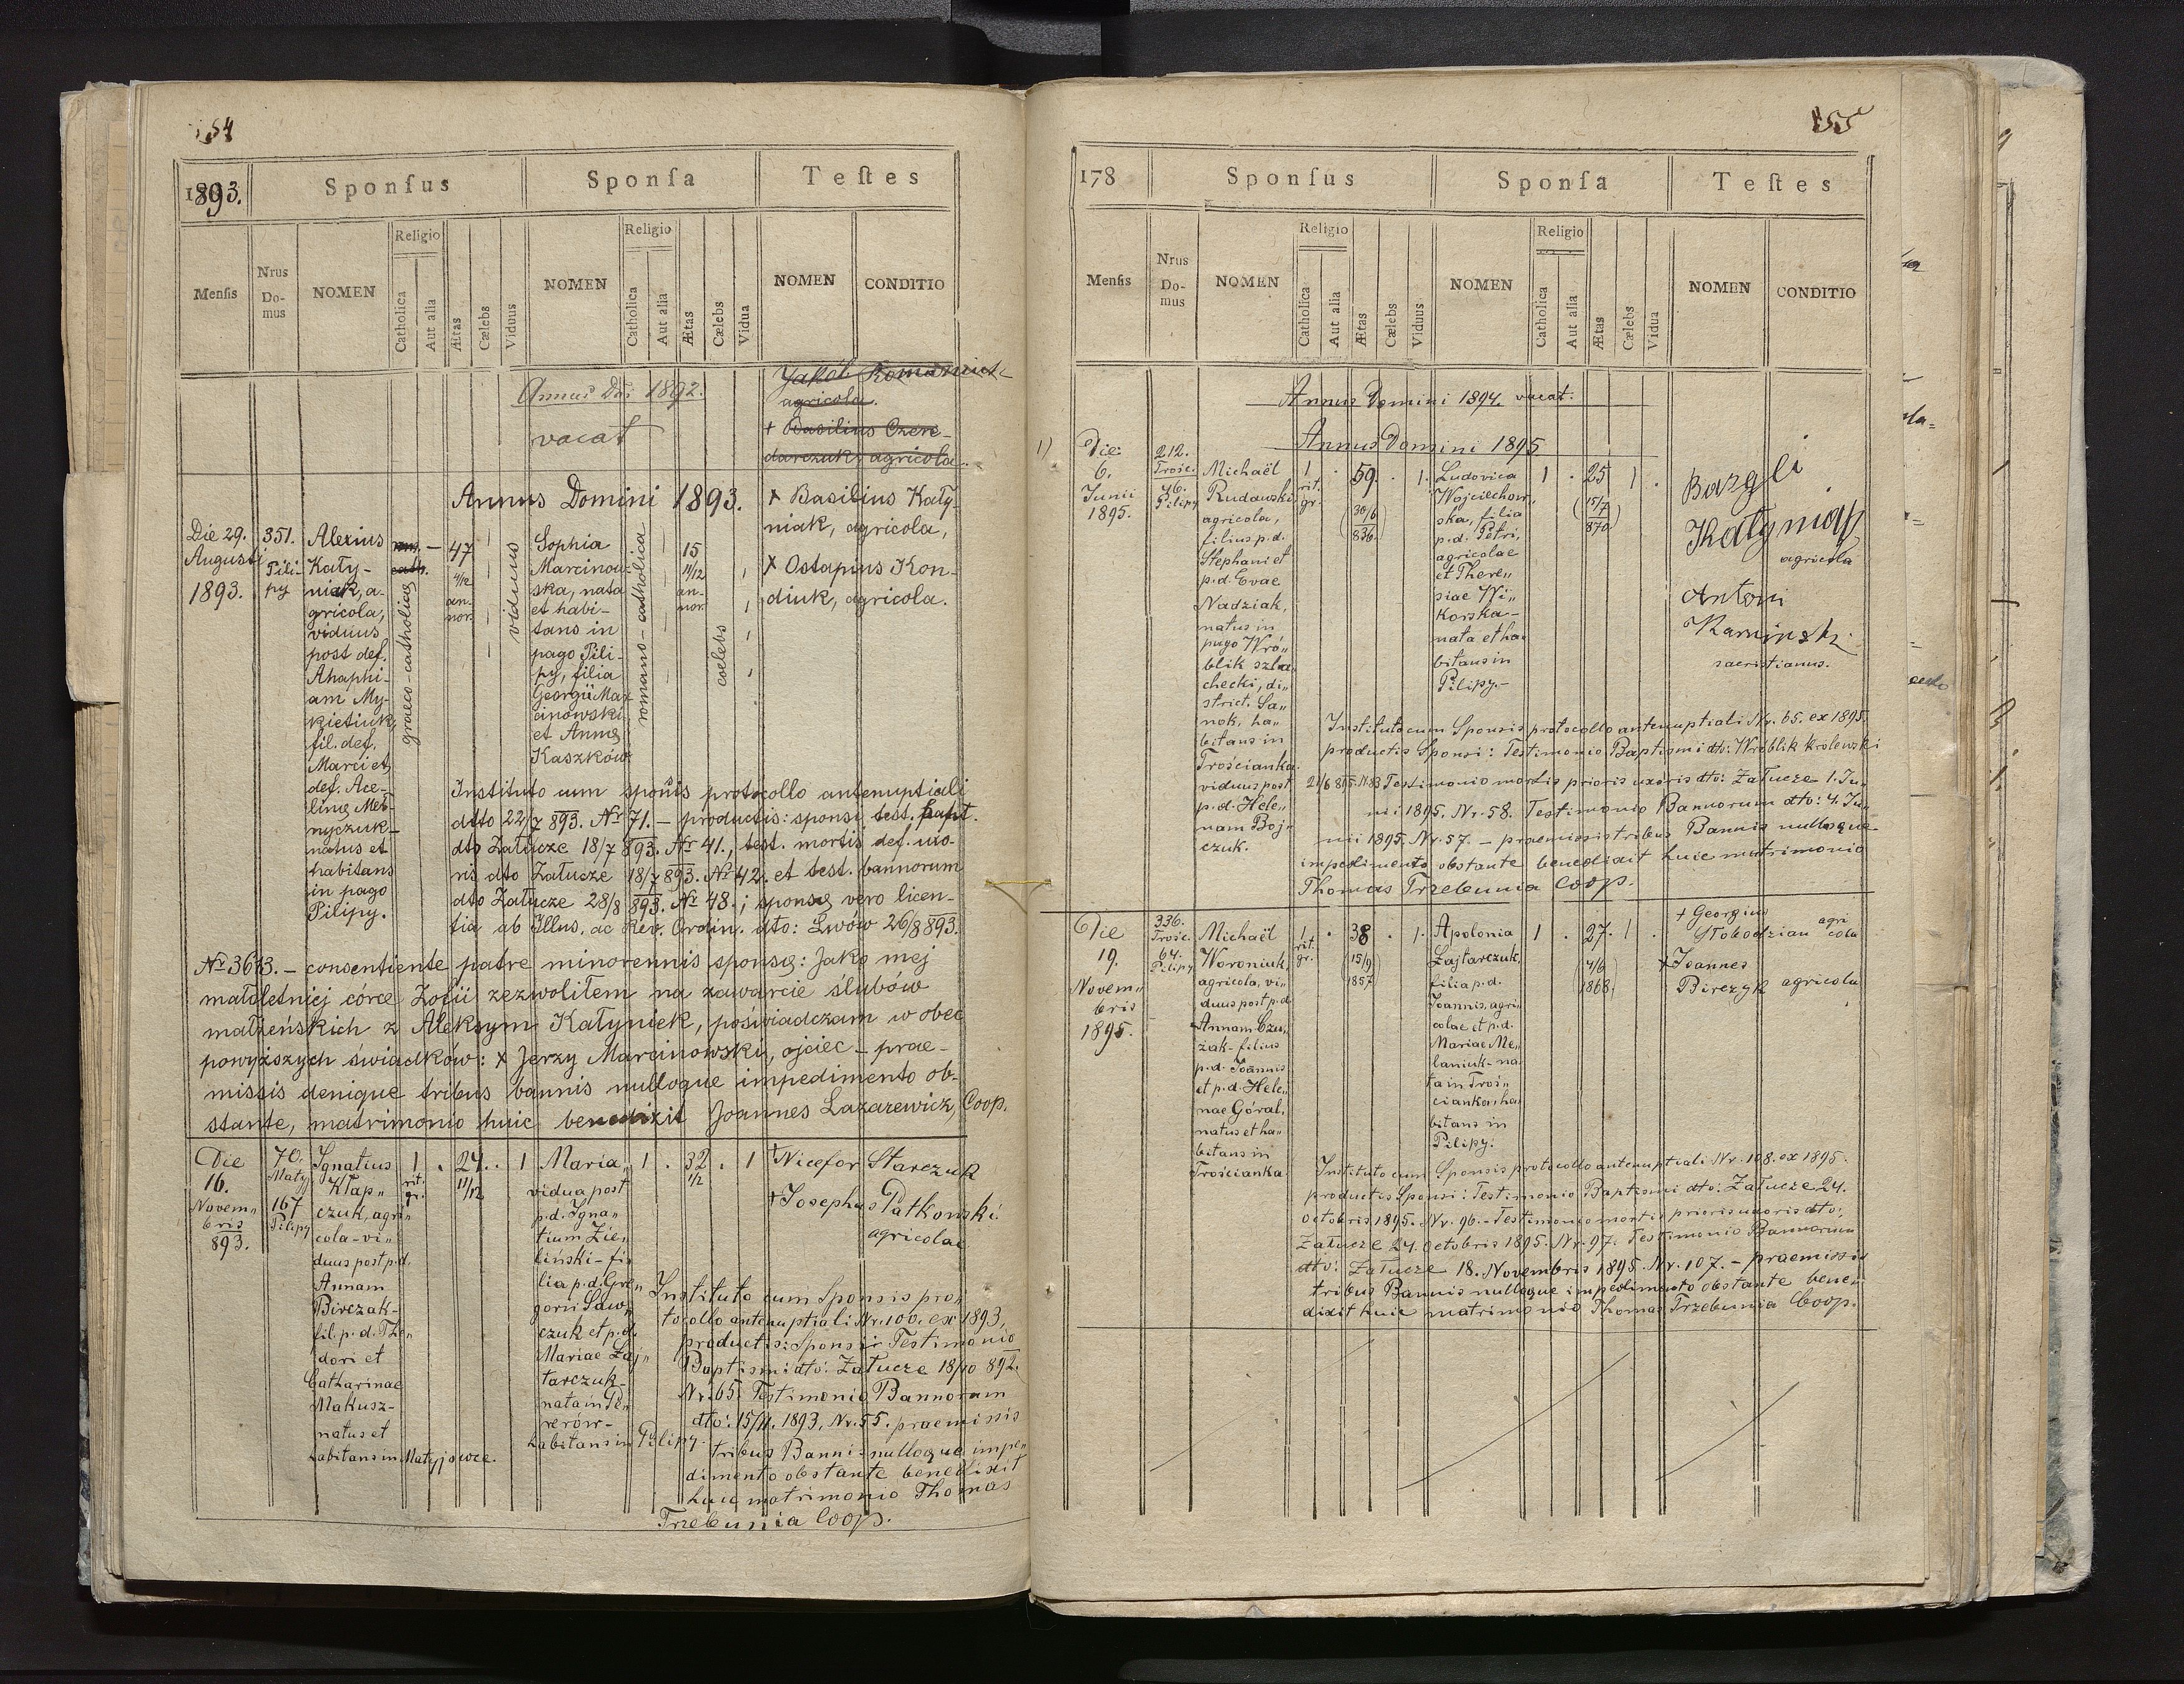 154
1893.
Sponsus Sponsa Testes
Mensis
Nrus Domus
NOMEN
Religio
Catholica
Aut alia
Ætas
Cælebs
Viduus
NOMEN
Religio
Catholica
Aut alia
Ætas
Cælebs
Vidua
NOMEN
CONDITIO
Annus Dni 1892.
vacat
Jakób Romaniuk
agricola.
+ Basilius Czere-
darczuk, agricola.
Annus Domini 1893.
Die 29.
Augusti
1893.
351.
Pili-
py
Alexius
Katy-
niak, a-
gricola,
viduus
post def.
Ahaphi-
am My-
kietiuk,
fil. def.
Marci et
def. Ace-
linę Mel-
nyczuk-
natus et
habitans
in pago
Pilipy.
rom.
cath.
graeco-catholica
47
4/12
an-
nor.
viduus
Sophia
Marcinow-
ska, nata
et habi-
tans in
pago Pili-
py, filia
Georgii Mar-
cinowski
et Annę
Kaszków.
romano-catholica
15
11/12
an-
nor.
coelebs
x Basilius Katy-
niak, agricola,
x Ostapius Kon-
diuk, agricola.
Instituto cum sponsis protocollo antenuptiali
dtto 22/7 893. Nr 71. - productis: sponsi test. bapt.
dto Załucze 18/7 893. Nr 41., test. mortis def. uxo-
ris dto Załucze 18/7 893. Nr 42. et test. bannorum
dto Załucze 28/8 893. Nr 48.; sponsę vero licen-
tia ab Illus. ac Rev. Ordin. dto: Lwów 26/8 893.
Nr 3613. - consentiente patre minorennis sponsę: Jako mej
małoletniej córce Zofii zezwoliłem na zawarcie ślubów
małżeńskich z Aleksym Katyniek, poświadczam w obec
powyższych świadków: x Jerzy Marcinowski, ojciec - prae-
missis denique tribus bannis nulloque impedimento ob-
stante, matrimonio huic benedixit Joannes Lazarewicz, Coop.
Die
16.
Novem„
bris
893.
70.
Matyj
167
Pilipy
Ignatius
Kłap„
czuk, agri„
cola - vi„
duus post p.d.
Annam
Birczak-
fil. p. d. The„
dori et
Catharinae
Makusz-
natus et
habitans in Matyjowce.
1
rit.
gr.
24.
11/12
1
Maria,
vidua post
p.d. Igna„
tium Zie„
liński - fi„
lia p.d. Gre„
gorii Saw„
czuk et p.d.
Mariae Łaj„
tarczuk-
nata in Pe„
rerów-
habitans in Pilipy.
1 . 32 . 1
1/2
+ Nicefor Starczuk
+ Josephus Patkowski
agricolae
Instituto cum Sponsis pro„
tocollo antenuptiali Nr. 100. ex 1893,
productis: Sponsi: Testimonio
Baptismi dto: Załucze 18/10 892.
Nr. 65. Testimonio Bannorum
dto: 15/11. 1893, Nr. 55. praemissis
tribus Bannis nulloque impe„
dimento obstante benedixit
huic matrimonio Thomas
Trzebunia Coop.
155
178
Sponsus Sponsa Testes
Mensis
Nrus Domus
NOMEN
Religio
Catholica
Aut alia
Ætas
Cælebs
Viduus
NOMEN
Religio
Catholica
Aut alia
Ætas
Cælebs
Vidua
NOMEN
CONDITIO
Annus Domini 1894. vacat.
Annus Domini 1895
1)
Die:
6.
Junii
1895.
212.
Trośc.
46.
Pilipy
Michaël
Rudawski,
agricola,
filius p.d.
Stephani et
p.d. Evae
Nadziak,
natus in
pago Wró„
blik szla„
checki, di„
strict. Sa„
nok, ha„
bitans in
Trościanka
viduus post
p.d. Hele„
nam Boj„
czuk.
1
rit.
gr.
59.
(30/6
836)
1.
Ludovica
Wojciechow„
ska, filia
p.d. Petri,
agricolae
et There„
siae Wi„
korska-
nata et ha„
bitans in
Pilipy.-
1 . 25 1 .
(15/7
870)
Bazyli
Katyniak
agricola
Antoni
Kaminski
sacristianus.
Instituto cum Sponsis protocollo antenuptiali Nr. 65. ex 1895.
productis Sponsi: Testimonio Baptismi dto: Wróblik królewski
21/6 895. N. 83 Testimonio mortis prioris uxoris dto: Załucze 1. Ju„
nii 1895. Nr. 58. Testimonio Bannorum dto: 4. Ju„
nii 1895. Nr. 57. - praemissis tribus Bannis nulloque
impedimento obstante benedixit huic matrimonio
Thomas Trzebunia Coop.
Die
19.
Novem„
bris
1895.
336.
Trośc.
64.
Pilipy
Michaël
Woroniuk,
agricola, vi„
duus post p.d.
Annam Czu„
żak - filius
p.d. Joannis
et p.d. Hele„
nae Góral,
natus et ha„
bitans in
Trościanka.
1.
rit.
gr.
38
(15/9
1857)
1.
Apolonia
Łajtarczuk,
filia p.d.
Joannis, agri„
colae et p.d.
Mariae Me„
laniuk - na„
ta in Troś„
cianka, ha„
bitans in
Pilipy.
1 . 27. 1 .
(4/6
1868)
+ Georgius
Słobodzian agri
cola
+ Joannes
Birczyk agricola
Instituto cum Sponsis protocollo antenuptiali Nr. 108. ex 1895.
productis Sponsi: Testimonio Baptismi dto: Załucze 24.
octobris 1895. Nr. 96. - Testimonio mortis prioris uxoris dto:
Załucze 24. octobris 1895. Nr. 97. Testimonio Bannorum
dto: Załucze 18. Novembris 1895. Nr. 107. - praemissis
tribus Bannis nulloque impedimento obstante bene„
dixit huic matrimonio Thomas Trzebunia Coop.